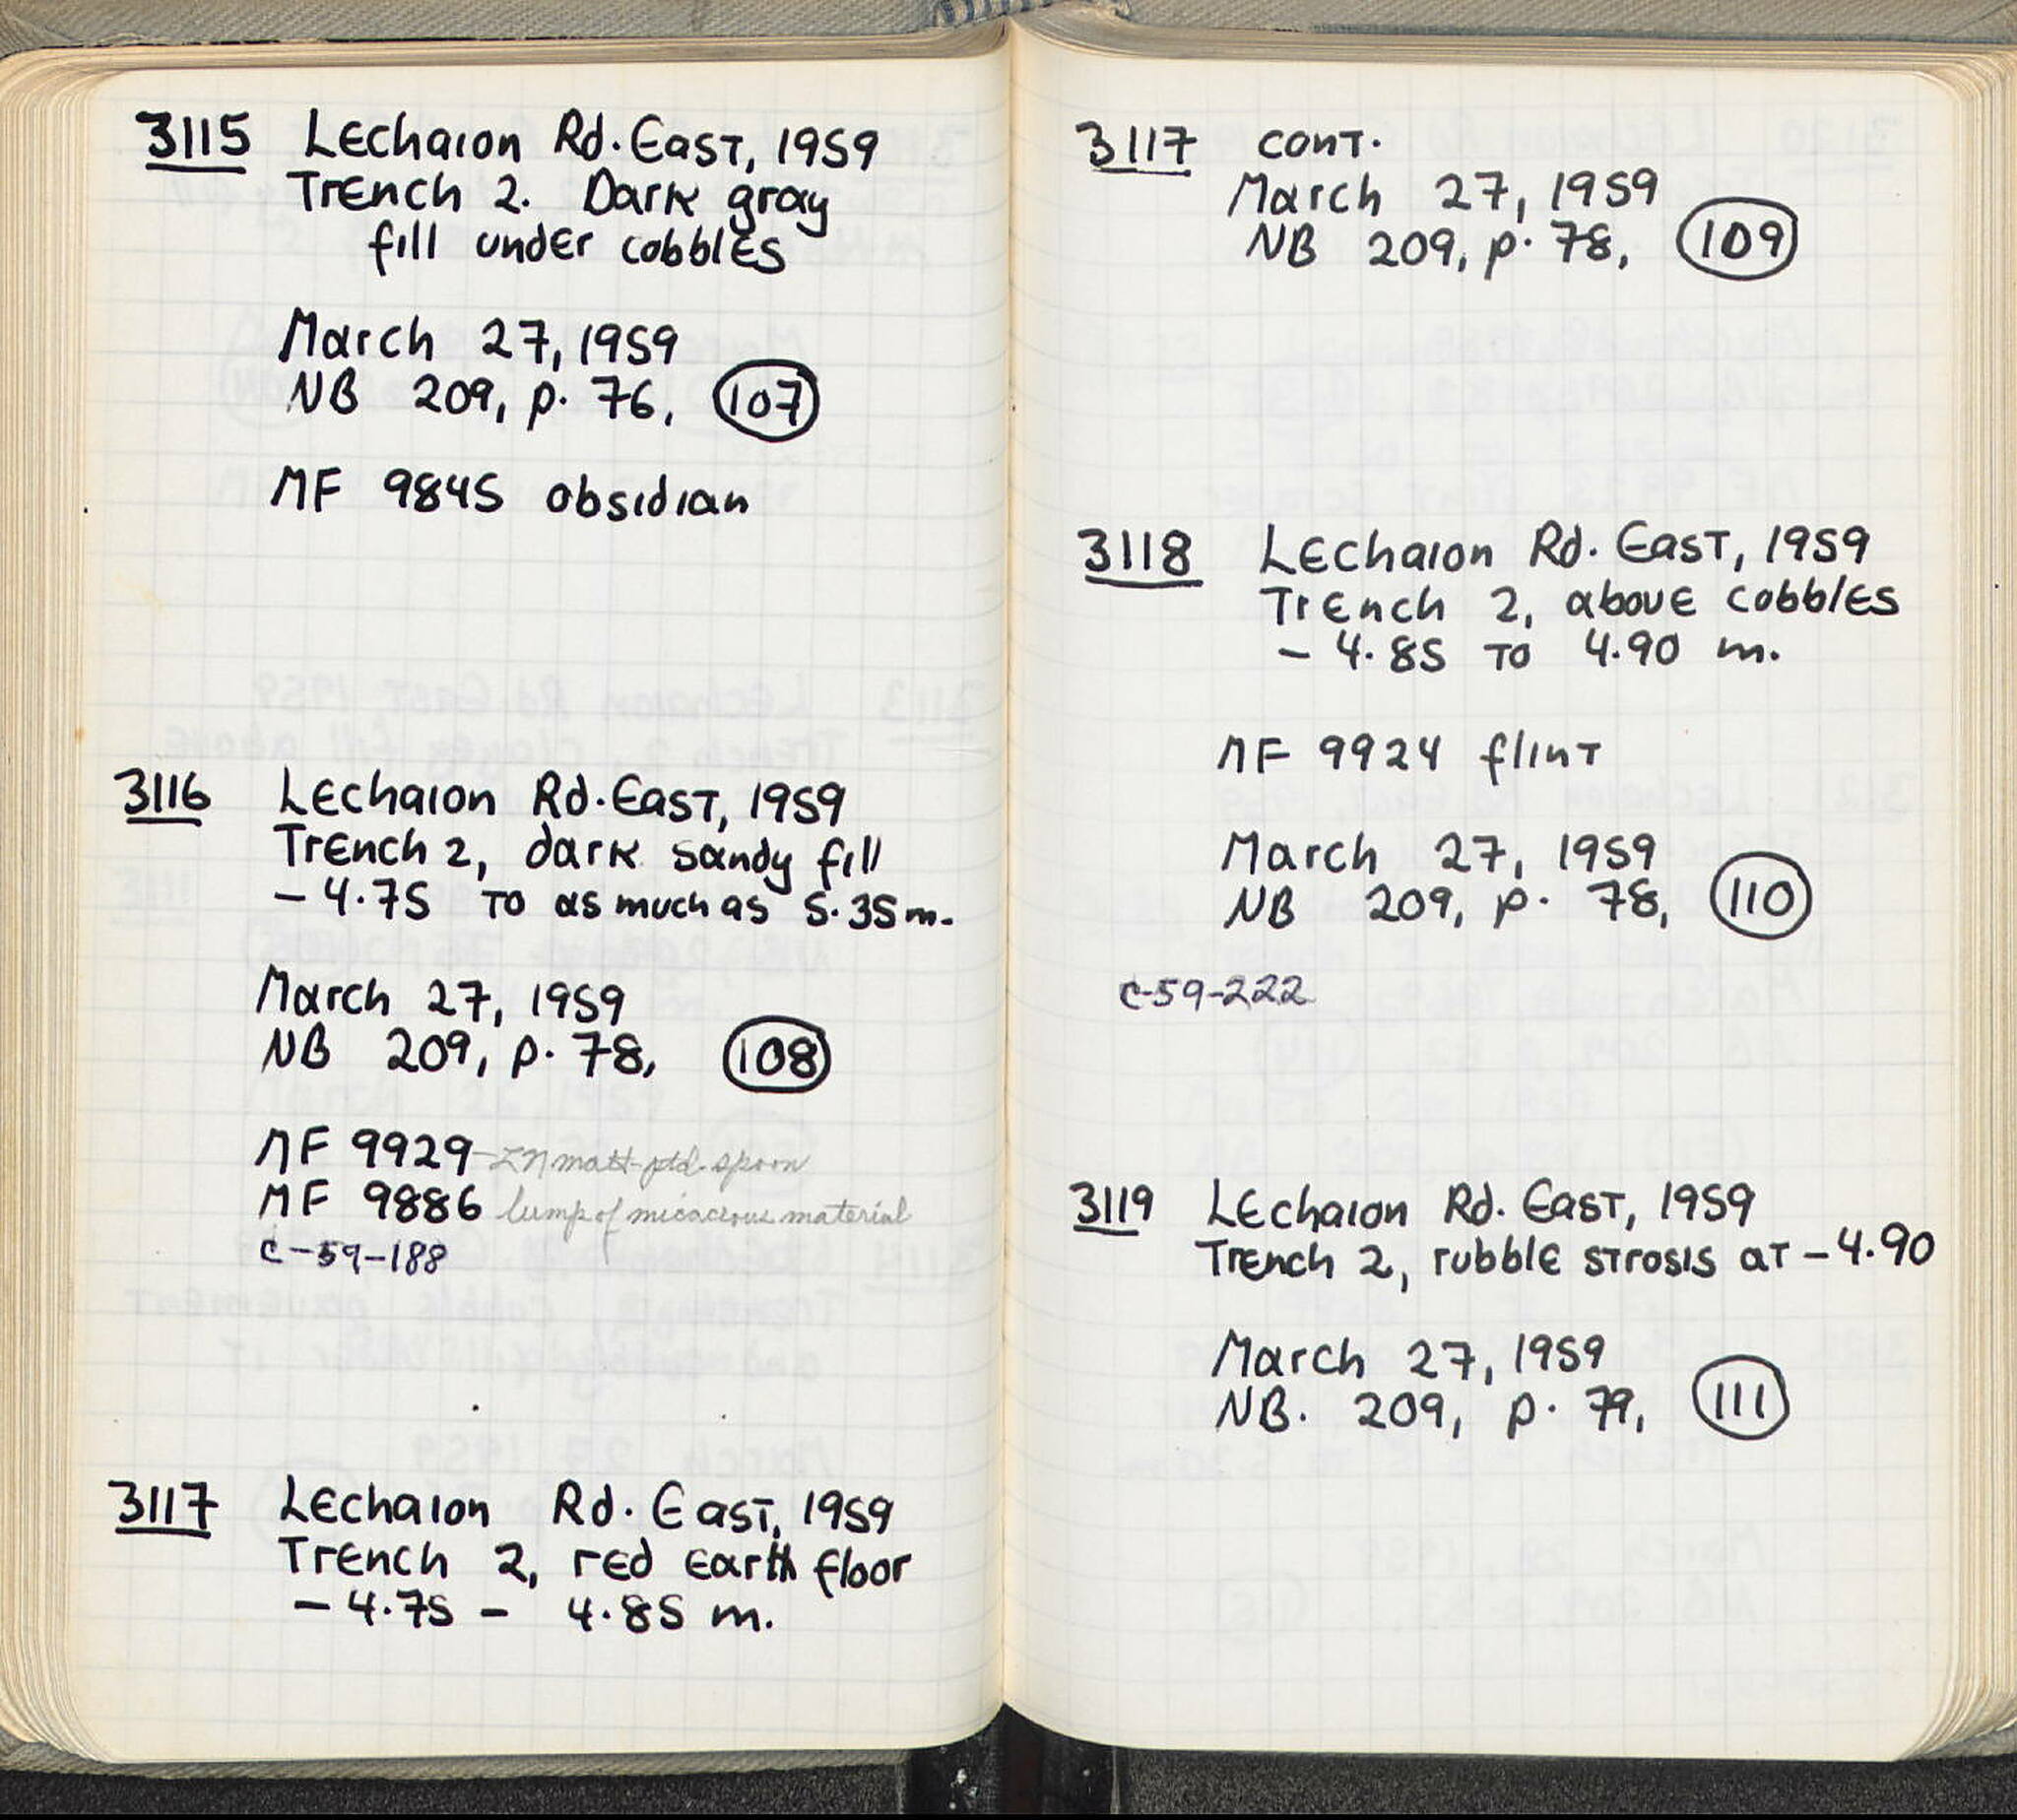 3115 Lechaion Rd. East, 1959
Trench 2. Dark gray
fill under cobbles
March 27, 1959
NB 209, p. 76, 107
MF 9845 obsidian
3116 Lechaion Rd. East, 1959
Trench 2, dark sandy fill
- 4.75 to as much as 5.35 m.
March 27, 1959
NB 209, p. 78, 108
MF 9929 - LN matt-ptd. spoon
MF 9886 lump of micaceous material
C-59-188
3117 Lechaion Rd. East, 1959
Trench 2, red earth floor
- 4.75 - 4.85 m.
3117 cont.
March 27, 1959
NB 209, p. 78, 109
3118 Lechaion Rd. East, 1959
Trench 2, above cobbles
- 4.85 to 4.90 m.
MF 9924 flint
March 27, 1959
NB 209, p. 78, 110
C-59-222
3119 Lechaion Rd. East, 1959
Trench 2, rubble strosis at - 4.90
March 27, 1959
NB. 209, p. 79, 111